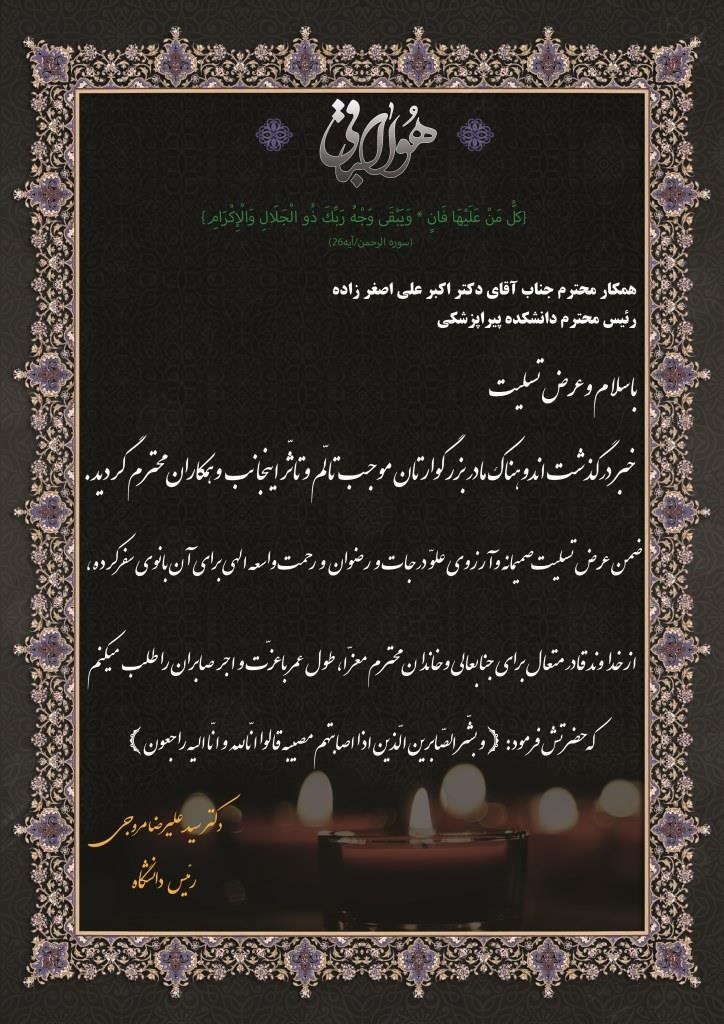 هُوَالباقی
{كلُّ مَنْ عَلَيْهَا فَانٍ * وَيَبْقَى وَجْهُ رَبِّكَ ذُو الْجَلَالِ وَالْإِكْرَامِ}
(سوره الرحمن/آیه26)
همکار محترم جناب آقای دکتر اکبر علی اصغر زاده
رئیس محترم دانشکده پیراپزشکی
باسلام و عرض تسلیت
خبر درگذشت اندوهناک مادر بزرگوارتان موجب تالّم و تاثّر اینجانب و همکاران محترم گردید.
ضمن عرض تسلیت صمیمانه و آرزوی علوّ درجات و رضوان و رحمت واسعه الهی برای آن بانوی سفر کرده،
از خداوند قادر متعال برای جنابعالی و خاندان محترم معزّا، طول عمر باعزّت و اجر صابران را طلب میکنم
که حضرتش فرمود: ﴿و بشّر الصّابرین الّذین اذا اصابتهم مصیبه قالوا انّالله و انّا الیه راجعون﴾
دکتر سید علیرضا مروجی
رئیس دانشگاه